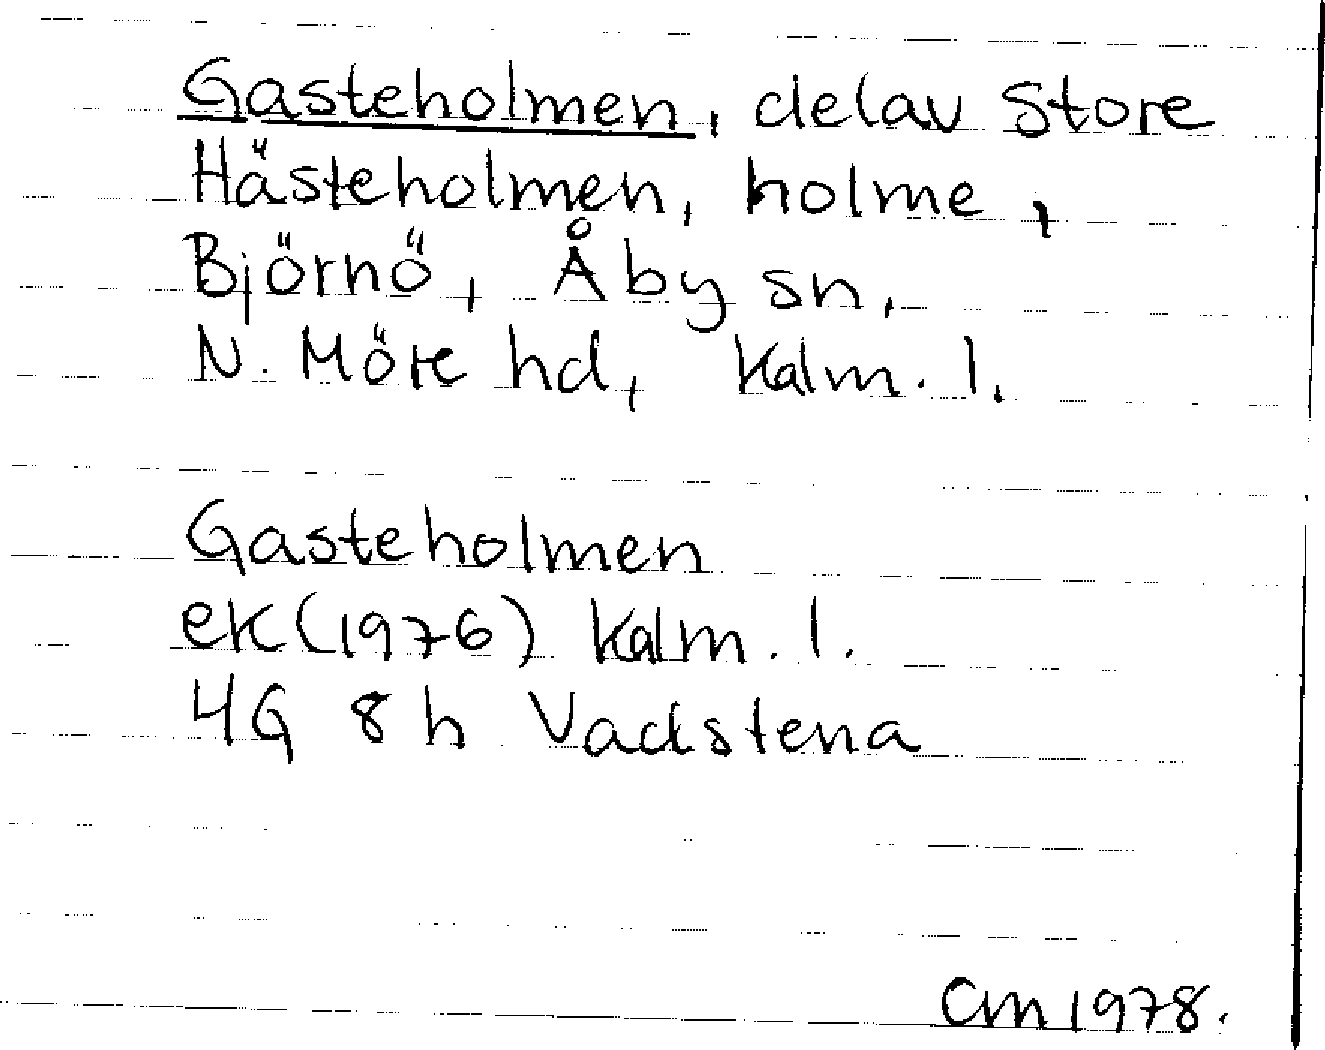 Gasteholmen, del av Store
Hästeholmen, holme,
Björnö, Åby sn,
N. Möre hd, Kalm. l.
Gasteholmen
ek (1976) Kalm. l.
4G 8h Vadstena
CM 1978.